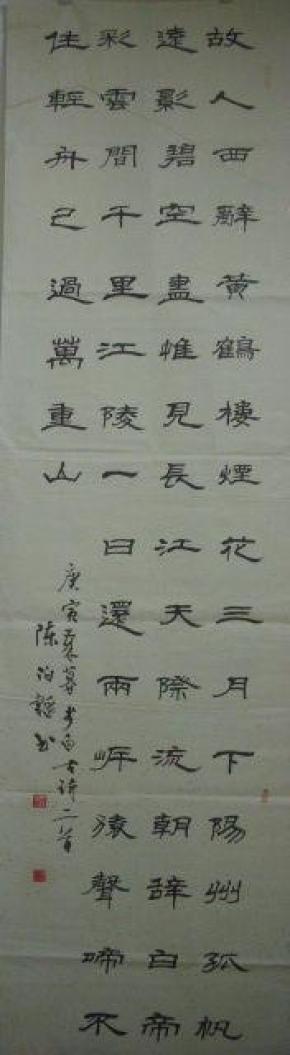 故人西辭黃鶴樓煙花三月下陽州孤帆
遠影碧空盡惟見長江天際流朝辞白帝
彩雲間千里江陵一日還兩岍猿聲啼不
住輕舟已過萬重山
庚寅秋暮書李白古诗二首
陈泊韬书